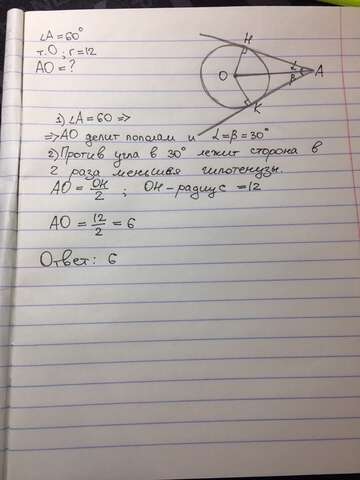 ∠A = 60°
т. O ; r = 12
AO = ?
H
O
α
β
A
K
1) ∠A = 60 =>
=> AO делит пополам и α = β = 30°
2) Против угла в 30° лежит сторона в
2 раза меньшая гипотенузы.
AO = OH/2 ; OH - радиус = 12
AO = 12/2 = 6
Ответ: 6